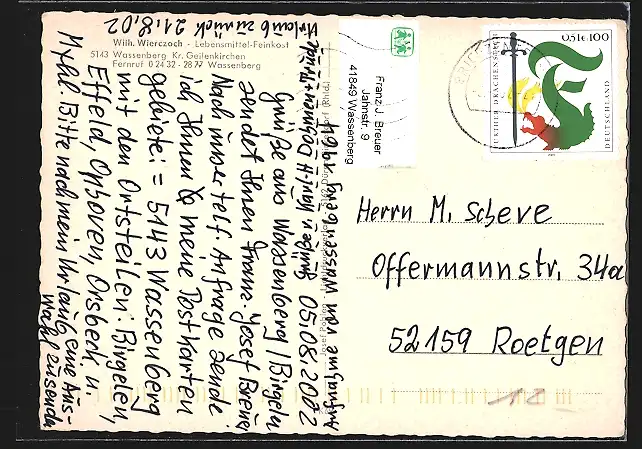 Wilh. Wierczoch - Lebensmittel-Feinkost
5143 Wassenberg Kr. Geilenkirchen
Fernruf 0 24 32 - 2877 Wassenberg
Urlaub zurück 21.8.02
05.08.2002
Grüße aus Wassenberg / Birgeln
sendet Ihnen Franz-Josef Breuer,
Nach unser telf. Anfrage sende
ich Ihnen 8 meine Postkarten
gebiete: = 5143 Wassenberg
mit den Ortsteilen: Birgelen,
Effeld, Ophoven, Orsbeck, u
Myhl. Bitte nach mein Urlaub, eine Aus-
wahl zusenden
Aufnahme von Wassenberg 1941
Franz J. Breuer
Jahnstr. 9
41849 Wassenberg
0,51€ 100
FURTHER DRACHENSTICH
DEUTSCHLAND
Herrn M. Scheve
Offermannstr. 34a
52159 Roetgen